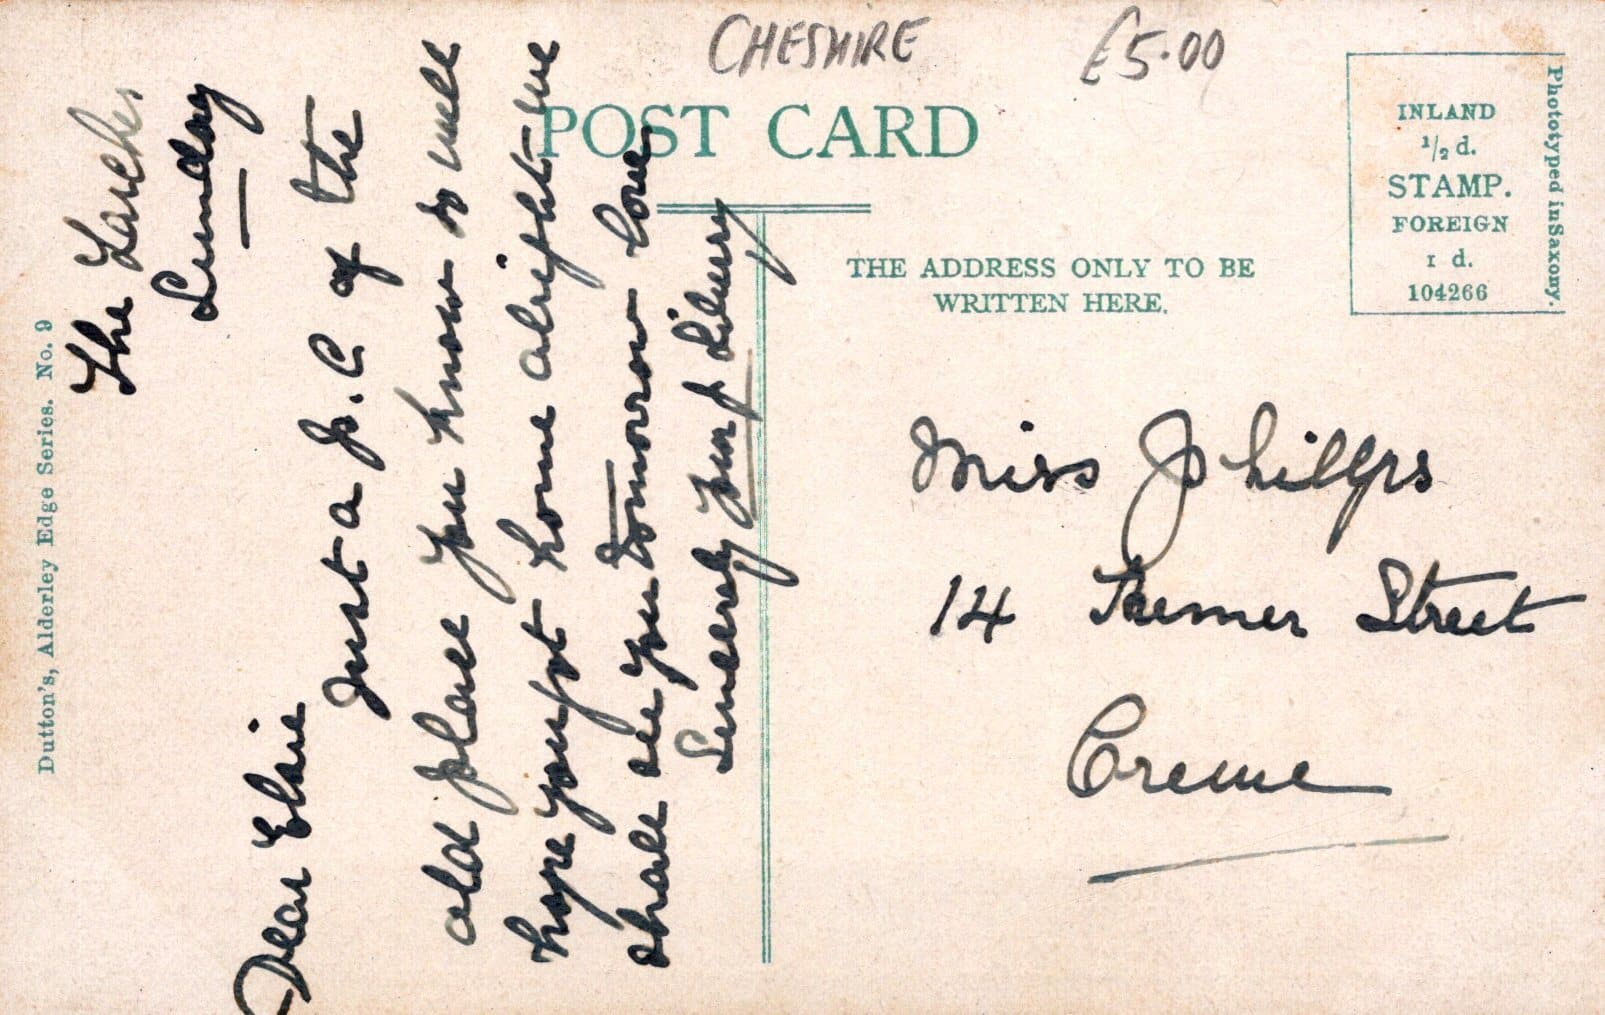 CHESHIRE
£5.00
POST CARD
INLAND
1/2 d.
STAMP.
FOREIGN
1 d.
104266
Phototyped in Saxony.
THE ADDRESS ONLY TO BE
WRITTEN HERE.
Dutton's, Alderley Edge Series. No. 9
The Larches
Sunday
Dear Elsie
Just a P.C of the
old place you know so well
hope you got home alright we
shall see you tomorrow Love
Sincerely
Miss Phillips
14 Street
Crewe